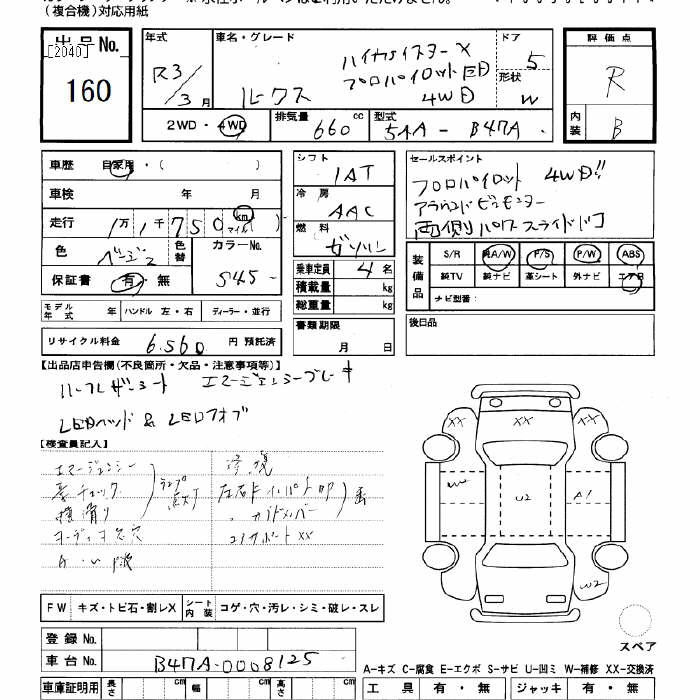 (複合機)対応用紙
出品No.
[2040]
160
年式 R3/3月
車名・グレード
ルークス
ハイウェイスターX
プロパイロットED
4WD
ドア 5
形状 W
2WD・4WD
排気量 660 cc
型式 5AA - B47A
評価点
R
内装 B
車歴 自家用・( )
車検 年 月
走行 1万1千750 km マイル( )
色 ベージュ 色替 カラーNo. S45
保証書 有・無
モデル年式 年 ハンドル 左・右 ディーラー・並行
リサイクル料金 6.560 円 預託済
シフト IAT
冷房 AAC
燃料 ガソリン
乗車定員 4 名
積載量 kg
総重量 kg
書類期限
月 日
セールスポイント
プロパイロット 4WD!!
アラウンドビューモニター
両側パワースライドドア
装備品 S/R 純A/W P/S P/W ABS
純TV 純ナビ 革シート 外ナビ エアB
ナビ型番:
後日品
【出品店申告欄(不良箇所・欠品・注意事項等)】
ハーフレザーシート エマージェンシーブレーキ
LEDヘッド & LEDフォグ
【検査員記入】
エマージェンシー
横滑り
ランプ点灯
XX XX
W U2 A1
W2
FW キズ・トビ石・割レX シート内装 コゲ・穴・汚レ・シミ・破レ・スレ
スペア
登録No.
車台No. B47A-0008125
A-キズ C-腐食 E-エクボ S-サビ U-凹ミ W-補修 XX-交換済
車庫証明用 長さ cm 幅 cm 高さ cm 工具 有・無 ジャッキ 有・無